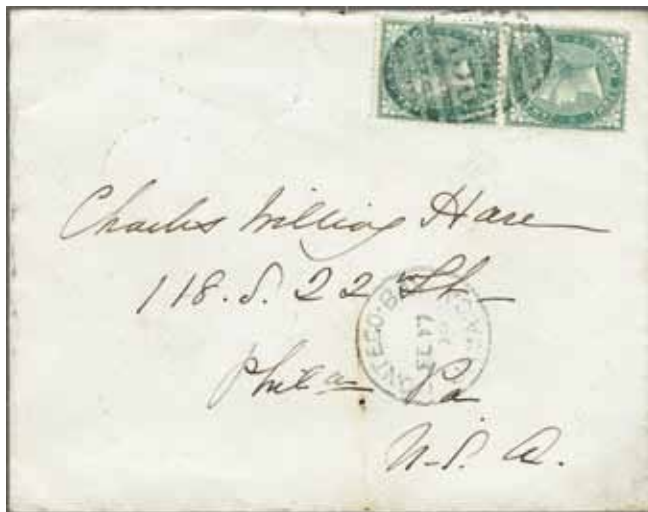 Charles Willing Hare
118. S. 22nd St.
Phila Pa
U. S. A.